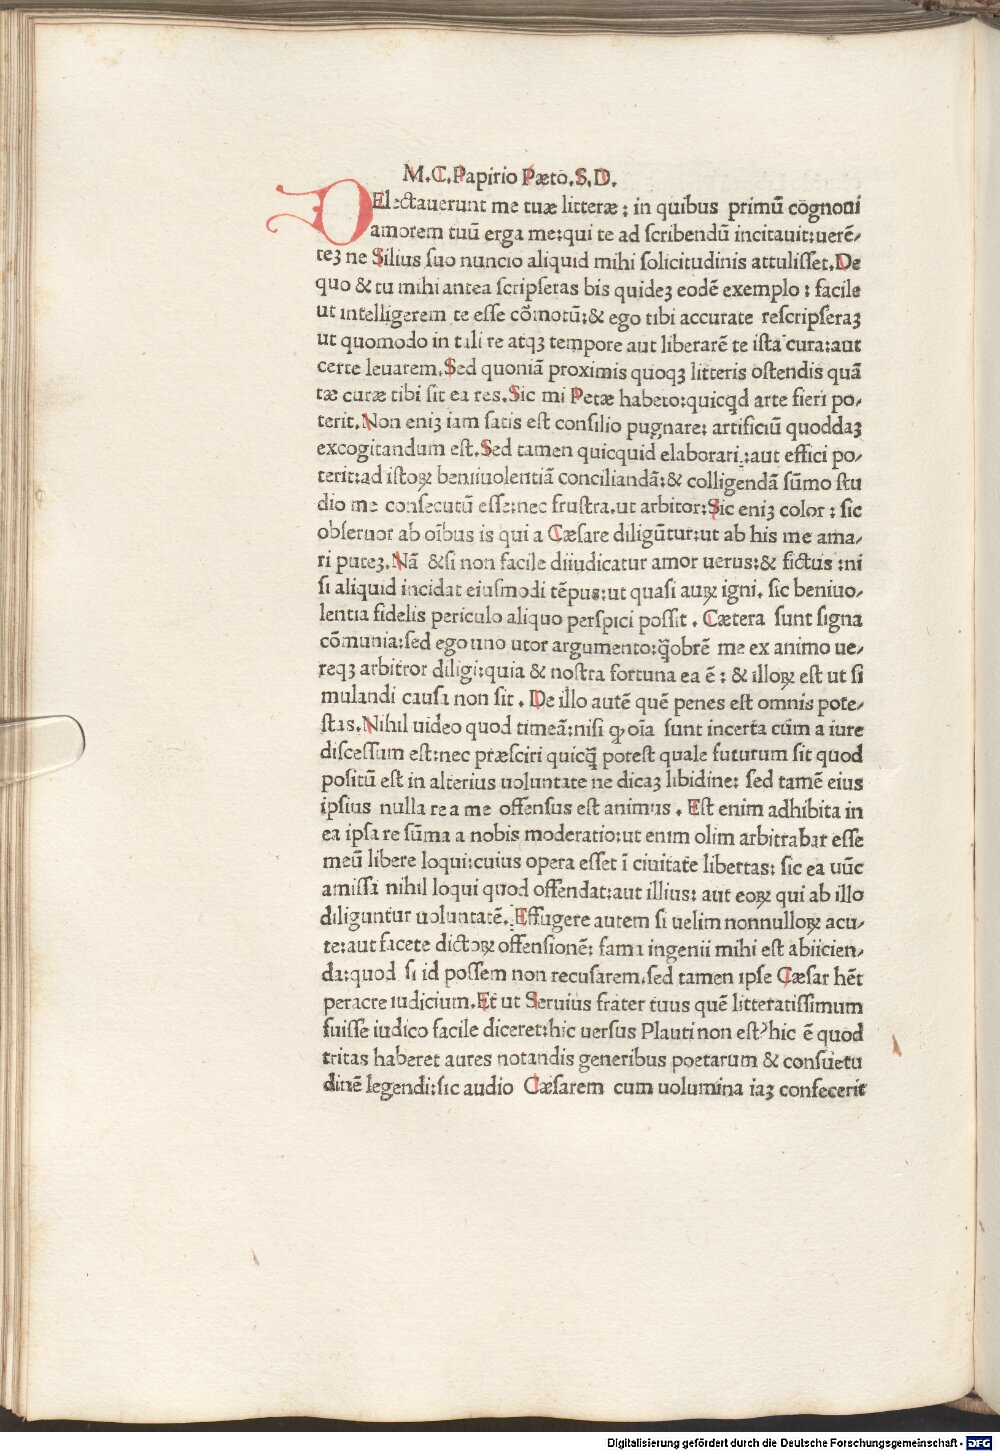 M.C.Papirio Pæto.S.D.
DElectauerunt me tuæ litteræ : in quibus primū cognoui
amorem tuū erga me:qui te ad scribendū incitauit:uerē-
teꝫ ne Silius suo nuncio aliquid mihi solicitudinis attulisset.De
quo & tu mihi antea scripseras bis quideꝫ eodē exemplo : facile
ut intelligerem te esse cōmotū:& ego tibi accurate rescripseraꝫ
ut quomodo in tali re atqꝫ tempore aut liberarē te ista cura:aut
certe leuarem.Sed quoniā proximis quoqꝫ litteris ostendis quā
tæ curæ tibi sit ea res.Sic mi Petæ habeto:quicq̄d arte fieri po-
terit.Non eniꝫ iam satis est consilio pugnare: artificiū quoddaꝫ
excogitandum est.Sed tamen quicquid elaborari:aut effici po-
terit:ad istoꝝ beniuolentiā conciliandā:& colligendā sūmo stu
dio me consecutū esse:nec frustra.ut arbitor:Sic eniꝫ color : sic
obseruor ab oībus is qui a Cæsare diligūtur:ut ab his me ama-
ri puteꝫ.Nā &si non facile diiudicatur amor uerus:& fictus :ni
si aliquid incidat eiusmodi tēpus:ut quasi auꝝ igni. sic beniuo-
lentia fidelis periculo aliquo perspici possit . Cætera sunt signa
cōmunia:sed ego uno utor argumento:q̄obrē me ex animo ue-
reqꝫ arbitror diligi:quia & nostra fortuna ea ē : & illoꝝ est ut si
mulandi causa non sit . De illo autē quē penes est omnis pote-
stas.Nihil uideo quod timeā:nisi ꝙ oīa sunt incerta cum a iure
discessum est:nec præsciri quicq̄ potest quale futurum sit quod
positū est in alterius uoluntate ne dicaꝫ libidine: sed tamē eius
ipsius nulla re a me offensus est animus . Est enim adhibita in
ea ipsa re sūma a nobis moderatio:ut enim olim arbitrabar esse
meū libere loqui:cuius opera esset ī ciuitate libertas: sic ea uūc
amissa nihil loqui quod offendat:aut illius: aut eoꝝ qui ab illo
diliguntur uoluntatē. Effugere autem si uelim nonnulloꝝ acu-
te:aut facete dictoꝝ offensionē: fama ingenii mihi est abiicien-
da:quod si id possem non recusarem.sed tamen ipse Cæsar hēt
peracre iudicium.Et ut Seruius frater tuus quē litteratissimum
fuisse iudico facile diceret:hic uersus Plauti non est?hic ē quod
tritas haberet aures notandis generibus poetarum & consuetu
dinē legendi:sic audio Cæsarem cum uolumina iaꝫ confecerit
Digitalisierung gefördert durch die Deutsche Forschungsgemeinschaft - DFG